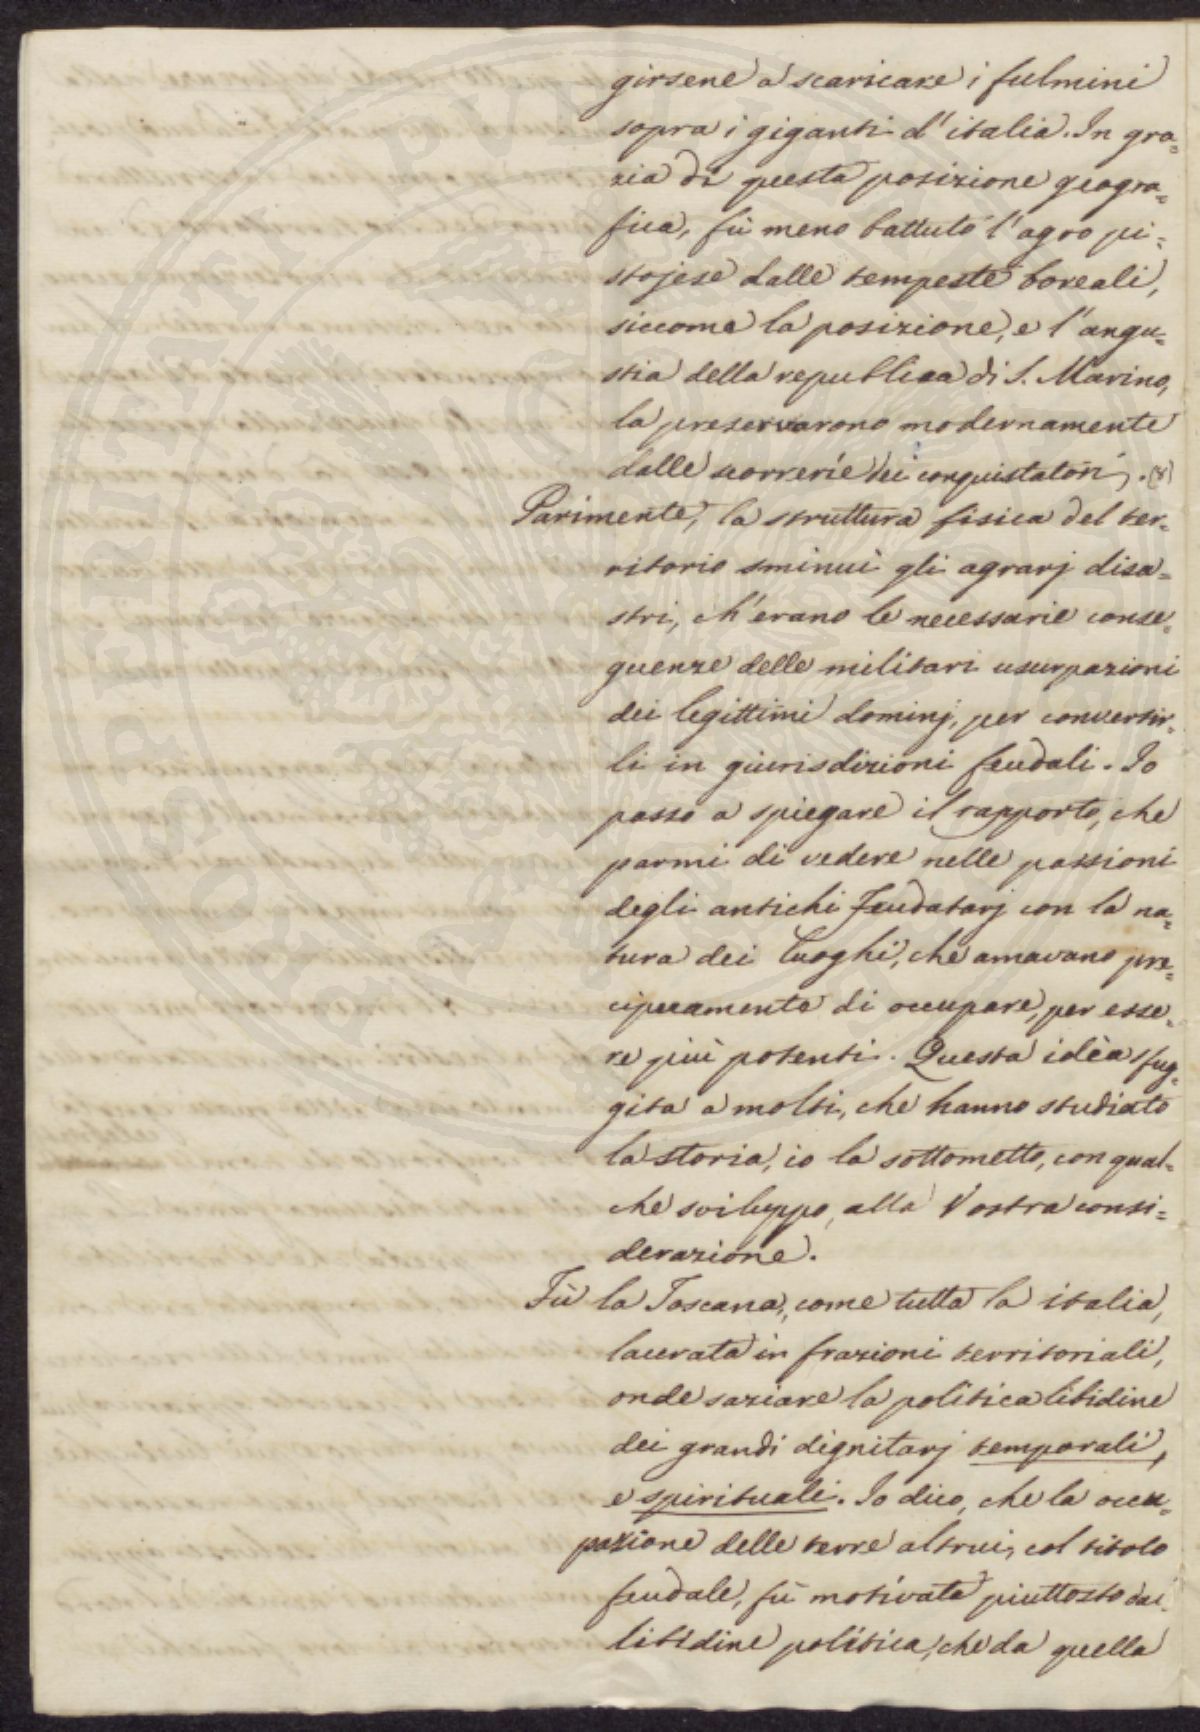 girsene a scaricare i fulmini
sopra i giganti d'italia. In gra=
zia di questa posizione geogra=
fica, fù meno battuto l'agro pi=
stojese dalle tempeste boreali,
siccome la posizione, e l'angu=
stia della republica di S. Marino,
la preservarono modernamente
dalle scorrerie dei conquistatori. (8)
Parimente, la struttura fisica del ter=
ritorio sminuì gli agrarj disa=
stri, ch'erano le necessarie conse=
guenze delle militari usurpazioni
dei legittimi dominj, per convertir=
li in giurisdizioni feudali. Io
passo a spiegare il rapporto, che
parmi di vedere nelle passioni
degli antichi Feudatarj con la na=
tura dei luoghi, che amavano pre=
cipuamente di occupare, per esse=
re più potenti. Questa idèa sfug=
gita a molti, che hanno studiato
la storia, io la sottometto, con qual=
che sviluppo, alla Vostra consi=
derazione.
Fù la Toscana, come tutta la italia,
lacerata in frazioni territoriali,
onde saziare la politica libidine
dei grandi dignitarj temporali,
e spirituali. Io dico, che la occu=
pazione delle terre altrui, col titolo
feudale, fù motivata piuttosto da
libidine politica, che da quella
SOSPITATI PUBLICAE